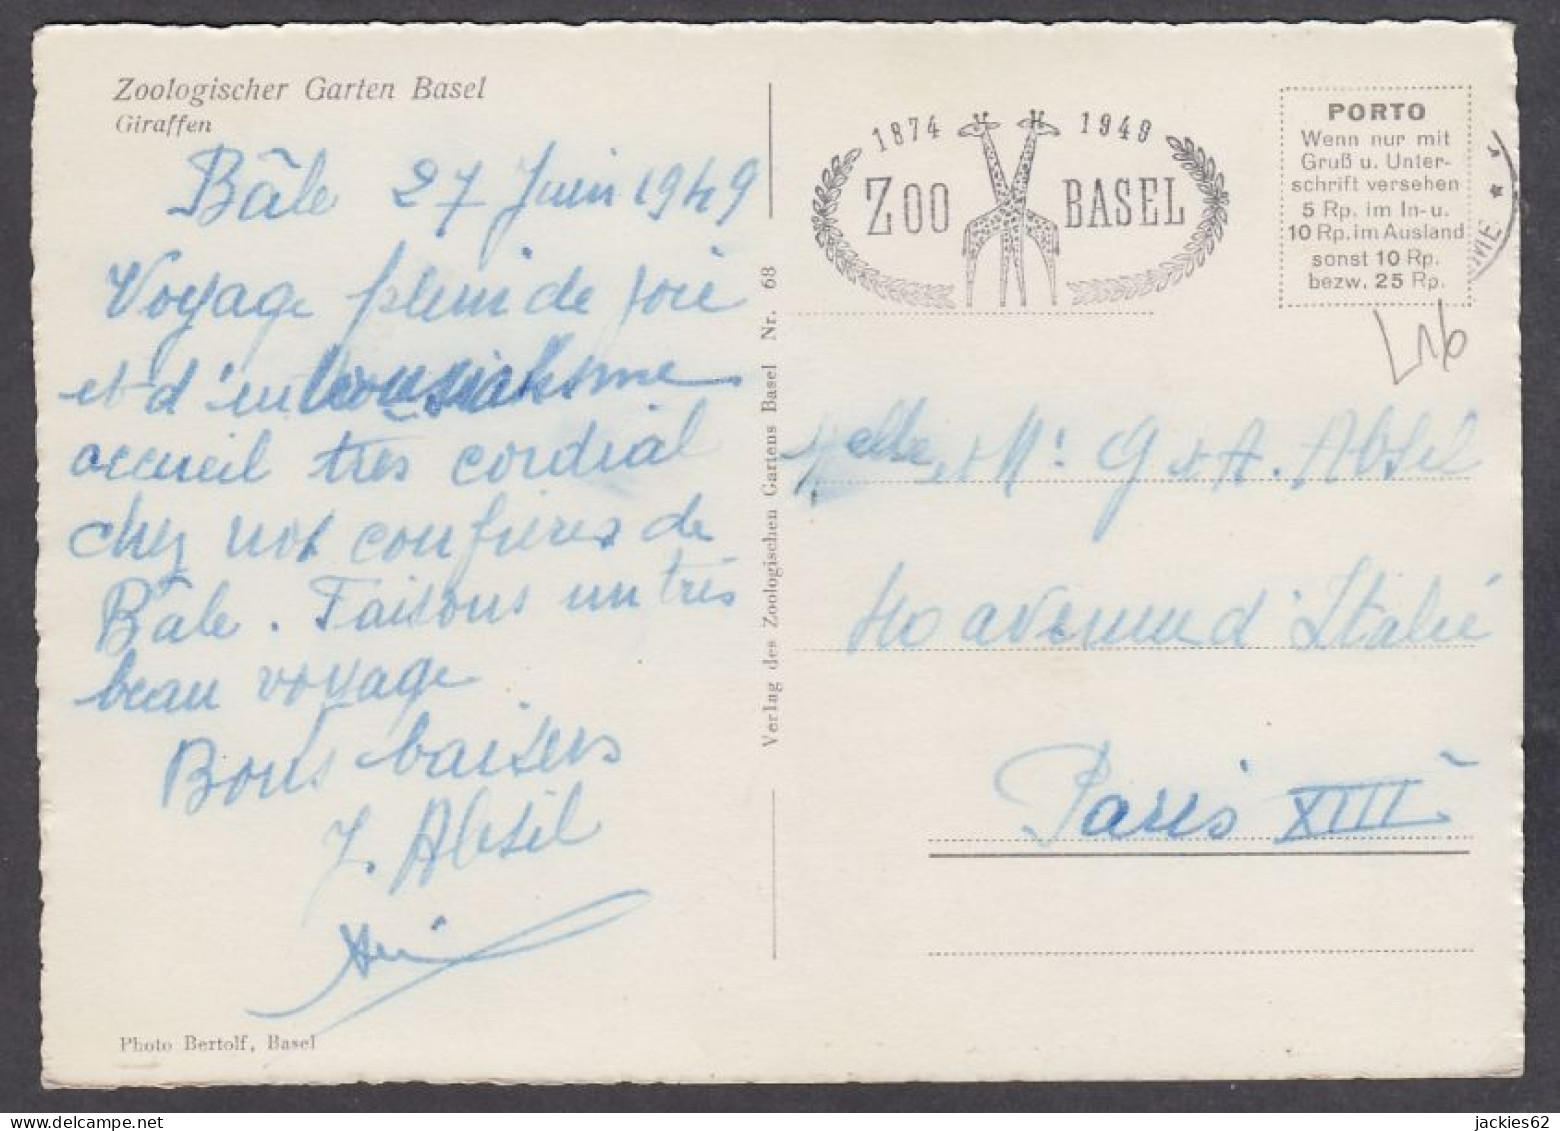 Zoologischer Garten Basel
Giraffen
Bâle 27 Juin 1949
Voyage plein de joie
et d'enthousiasme
accueil très cordial
chez nos confrères de
Bâle. Faisons un très
beau voyage
Bons baisers
J. Absil
Photo Bertolf, Basel
Verlag des Zoologischen Gartens Basel Nr. 68
1874 1949
ZOO BASEL
PORTO
Wenn nur mit
Gruß u. Unter-
schrift versehen
5 Rp. im In- u.
10 Rp. im Ausland
sonst 10 Rp.
bezw. 25 Rp.
Melle et Mr G et A. Absil
40 avenue d'Italie
Paris XIII
jackies62